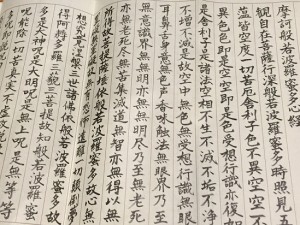 摩訶般若波羅蜜多心經
觀自在菩薩行深般若波羅蜜多時照見五
蘊皆空度一切苦厄舍利子色不異空空不
異色色即是空空即是色受想行識亦復如
是舍利子是諸法空相不生不滅不垢不淨
不增不減是故空中無色無受想行識無眼
耳鼻舌身意無色聲香味觸法無眼界乃至
無意識界無無明亦無無明盡乃至無老死
亦無老死盡無苦集滅道無智亦無得以無
所得故菩提薩埵依般若波羅蜜多故心無
罣礙無罣礙故無有恐怖遠離一切顛倒夢
想究竟涅槃三世諸佛依般若波羅蜜多故
得阿耨多羅三藐三菩提故知般若波羅蜜
多是大神呪是大明呪是無上呪是無等等
呪能除一切苦真實不虛故